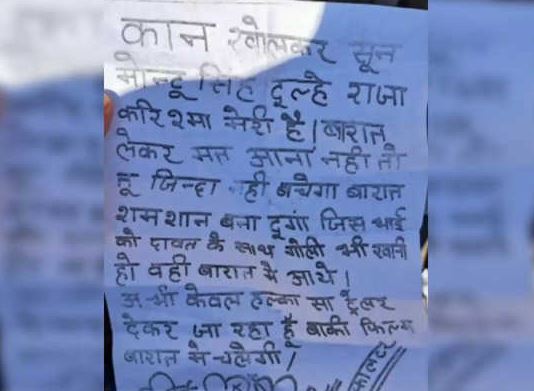 कान खोलकर सून
मोन्टू सिंह दूल्हे राजा
करिश्मा मेरी है। बारात
लेकर मत आना नही तो
तू जिन्दा नही बचेगा बारात
शमशान बना दूगां जिस भाई
को दावत के साथ गोली भी खानी
हो वही बारात मे आये।
अभी केवल हल्का सा ट्रेलर
देकर जा रहा हूँ बाकी फिल्म
बारात मे चलेगी।